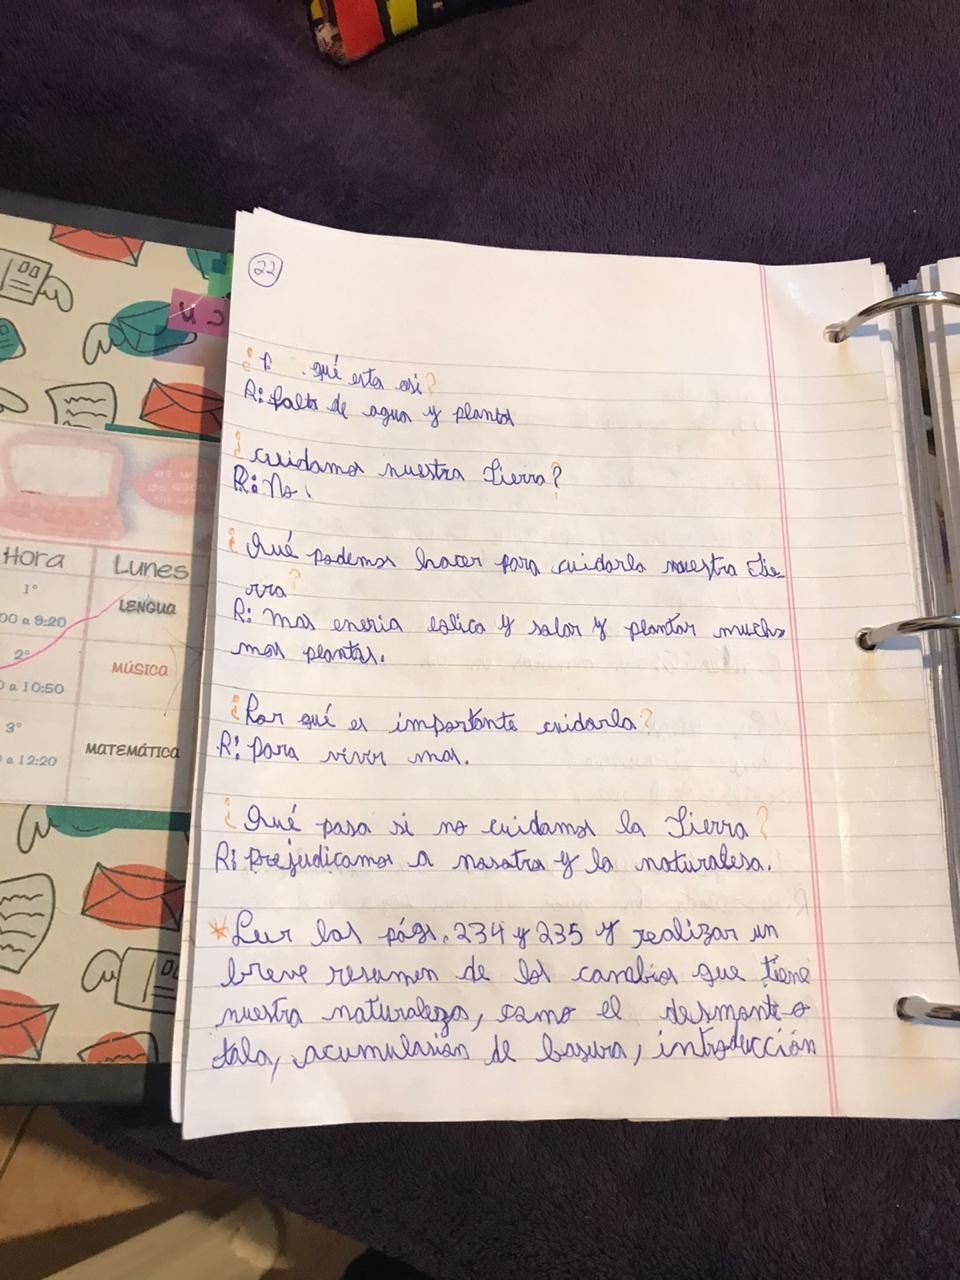 22
¿P   qué esta asi?
R: falta de agua y plantas
¿cuidamos nuestra Tierra?
R: No.
¿Qué podemos hacer para cuidarla nuestra tie-
rra?
R: mas eneria eolica y solar y plantar mucho
mas plantas.
¿Por qué es importante cuidarla?
R: para vivir mas.
¿Qué pasa si no cuidamos la Tierra?
R: prejudicamos a nosotros y la naturalesa.
*Leer las págs. 234 y 235 y realizar un
breve resumen de los cambios que tiene
nuestra naturaleza, como el desmonte o
tala, acumulasión de basura, introducción
Hora Lunes
1° LENGUA
00 a 9:20
2° MÚSICA
0 a 10:50
3° MATEMÁTICA
a 12:20